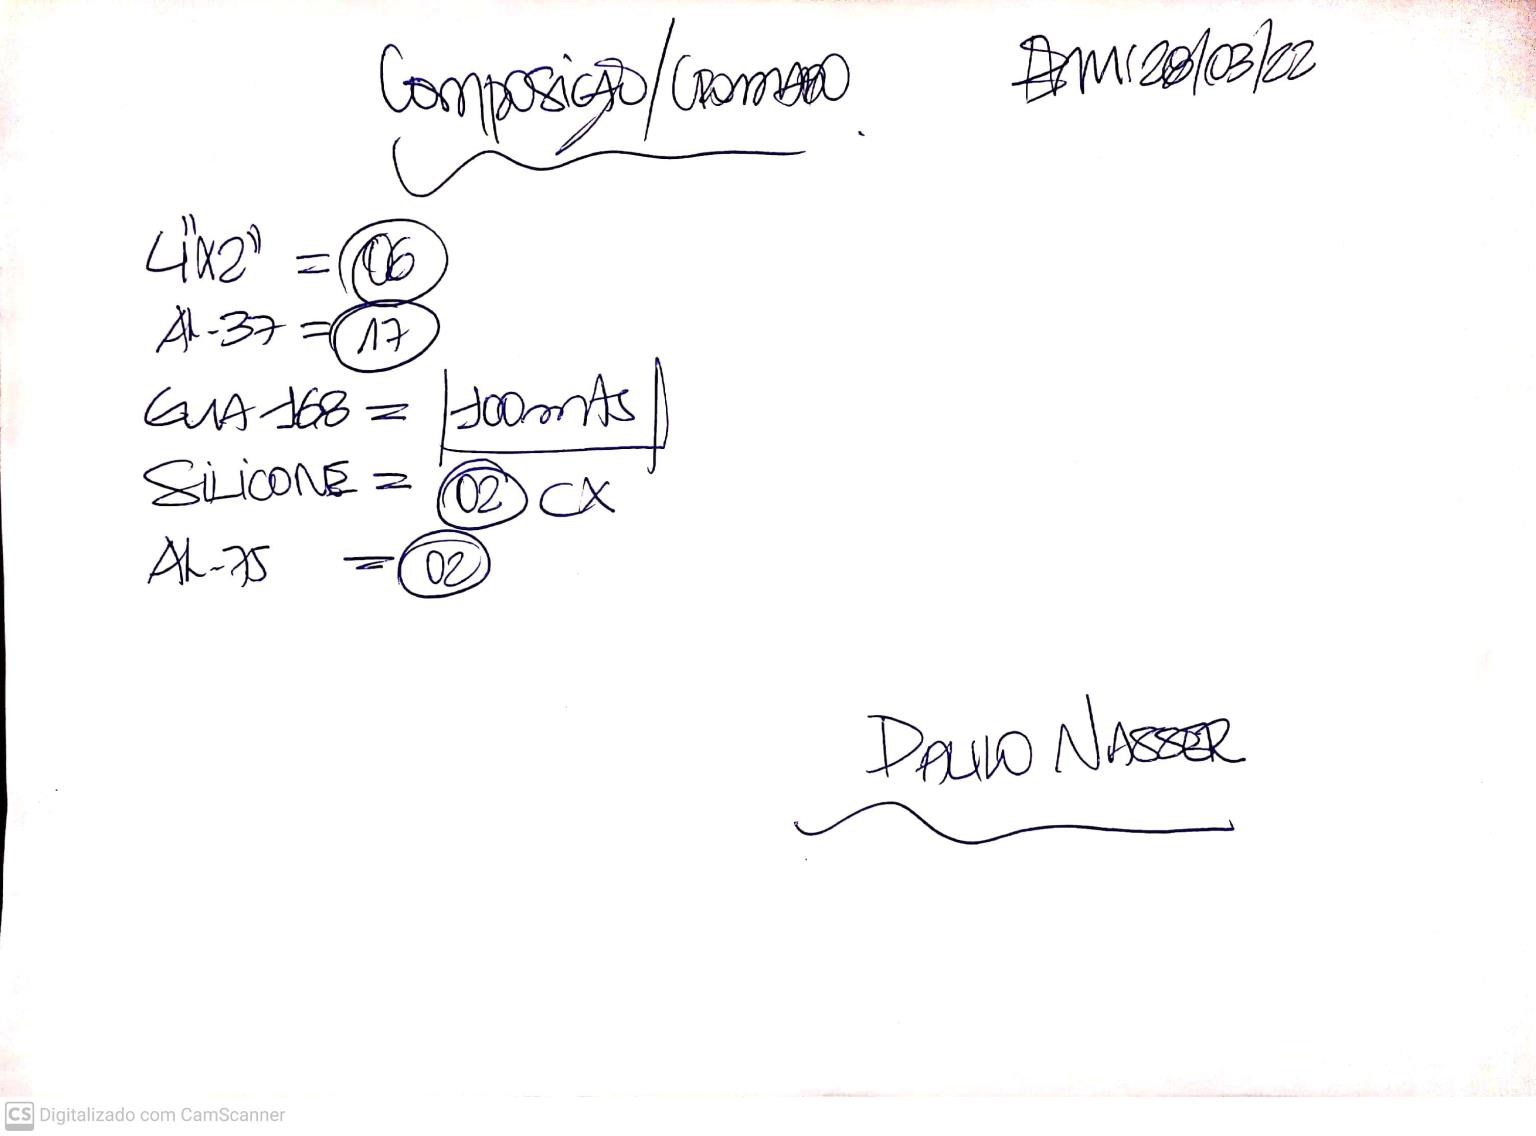 Composição/Cromado
EM: 28/03/22
4"x2" = 06
AL-37 = 17
GUIA-168 = 100mts
SILICONE = 02 CX
AL-75 = 02
NASSER
CS Digitalizado com CamScanner